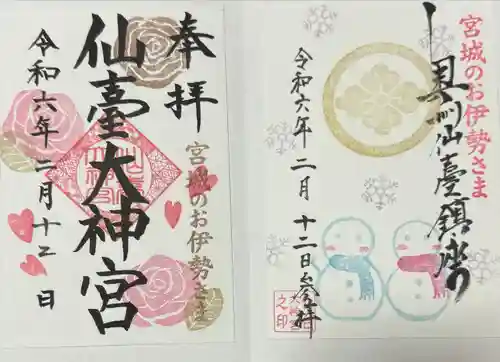 奉拝
宮城のお伊勢さま
仙臺大神宮
令和六年二月十二日
宮城のお伊勢さま
奥州仙臺鎮座
令和六年二月十二日参拝